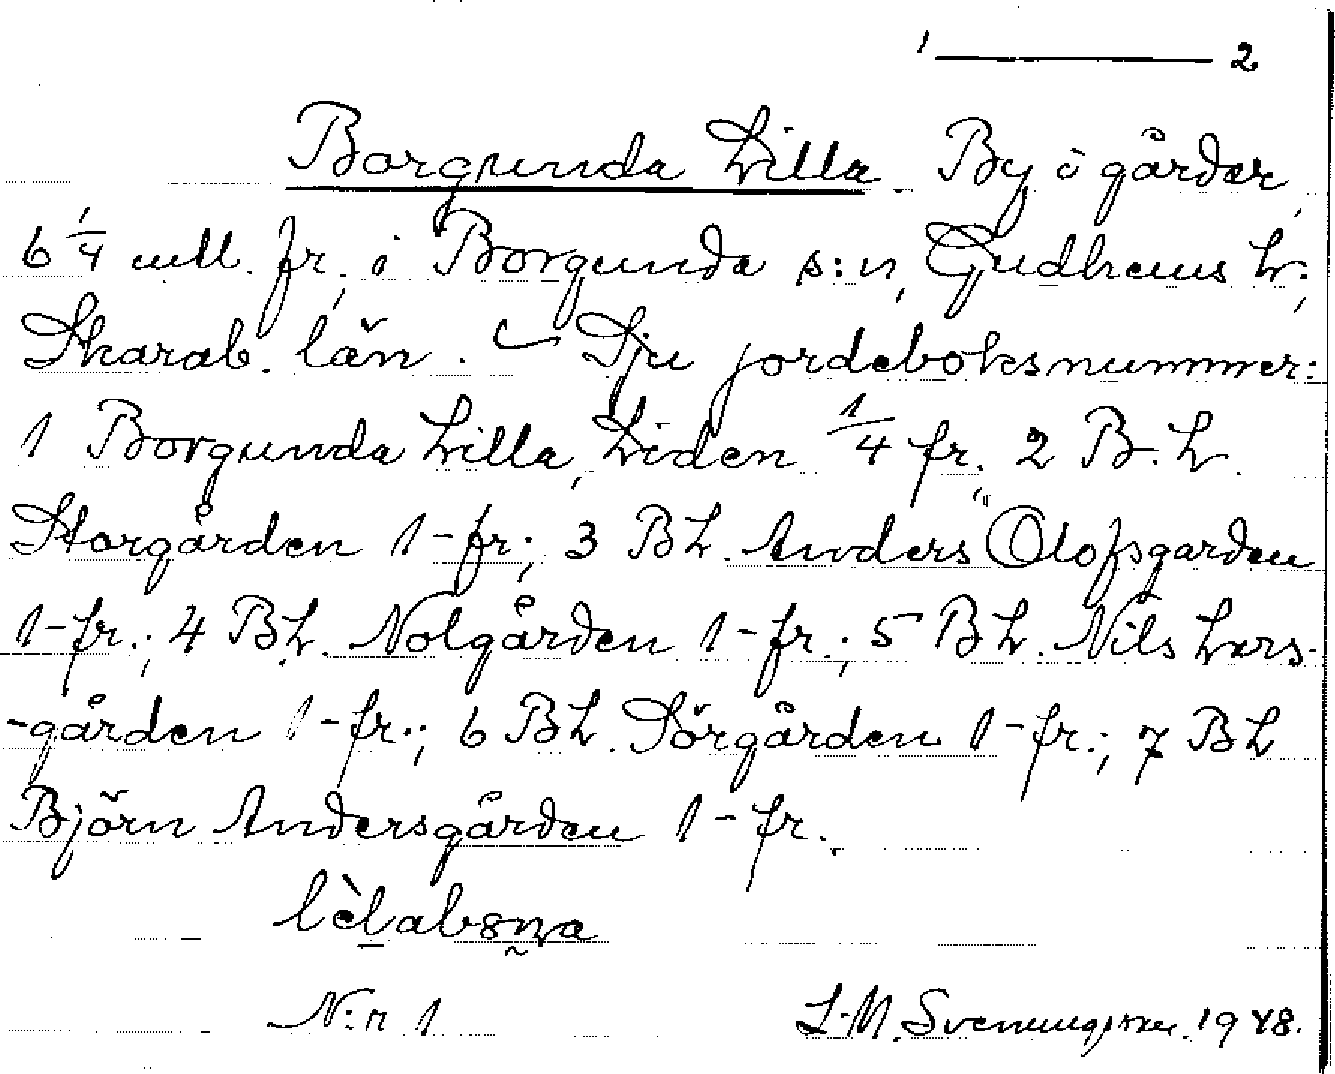 1 ——— 2
Borgunda Lilla. By ō gårdar,
6 1/4 mtl. fr. i Borgunda s:n, Gudhems h:,
Skarab. län. — Sju jordeboksnummer:
1 Borgunda Lilla, Liden 1/4 fr. 2 B. L.
Storgården 1-fr.; 3 B L. Anders Olofsgården
1-fr.; 4 B L. Nolgården 1-fr.; 5 B L. Nils Lars-
-gården 1-fr.; 6 B L. Sörgården 1-fr.; 7 B L
Björn Andersgården 1-fr.
N:r 1 L. M. Svenungsson. 1948.